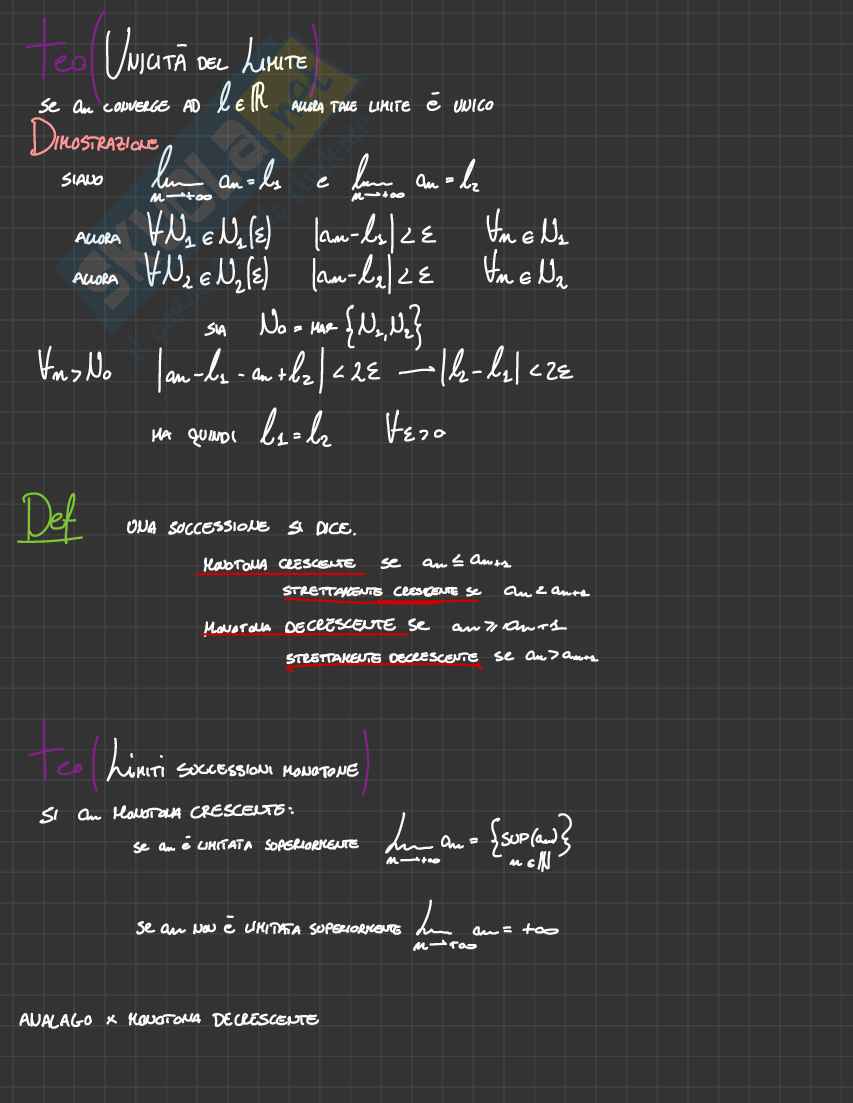 teo (UNICITÀ DEL LIMITE)
SE an CONVERGE AD l ∈ ℝ ALLORA TALE LIMITE È UNICO
DIMOSTRAZIONE
SIANO lim n→+∞ an = l1 e lim n→+∞ an = l2
ALLORA ∀N1 ∈ N1(ε) |an - l1| < ε ∀n ∈ N1
ALLORA ∀N2 ∈ N2(ε) |an - l2| < ε ∀n ∈ N2
SIA N0 = MAX {N1, N2}
∀n > N0 |an - l1 - an + l2| < 2ε → |l2 - l1| < 2ε
MA QUINDI l1 = l2 ∀ε > 0
Def UNA SUCCESSIONE SI DICE.
MONOTONA CRESCENTE SE an ≤ an+1
STRETTAMENTE CRESCENTE SE an < an+1
MONOTONA DECRESCENTE SE an ≥ an+1
STRETTAMENTE DECRESCENTE SE an > an+1
teo (LIMITI SUCCESSIONI MONOTONE)
SI an MONOTONA CRESCENTE:
SE an È LIMITATA SUPERIORMENTE lim n→+∞ an = {SUP(an) n ∈ ℕ}
SE an NON È LIMITATA SUPERIORMENTE lim n→+∞ an = +∞
ANALAGO x MONOTONA DECRESCENTE
SKUOLA.net